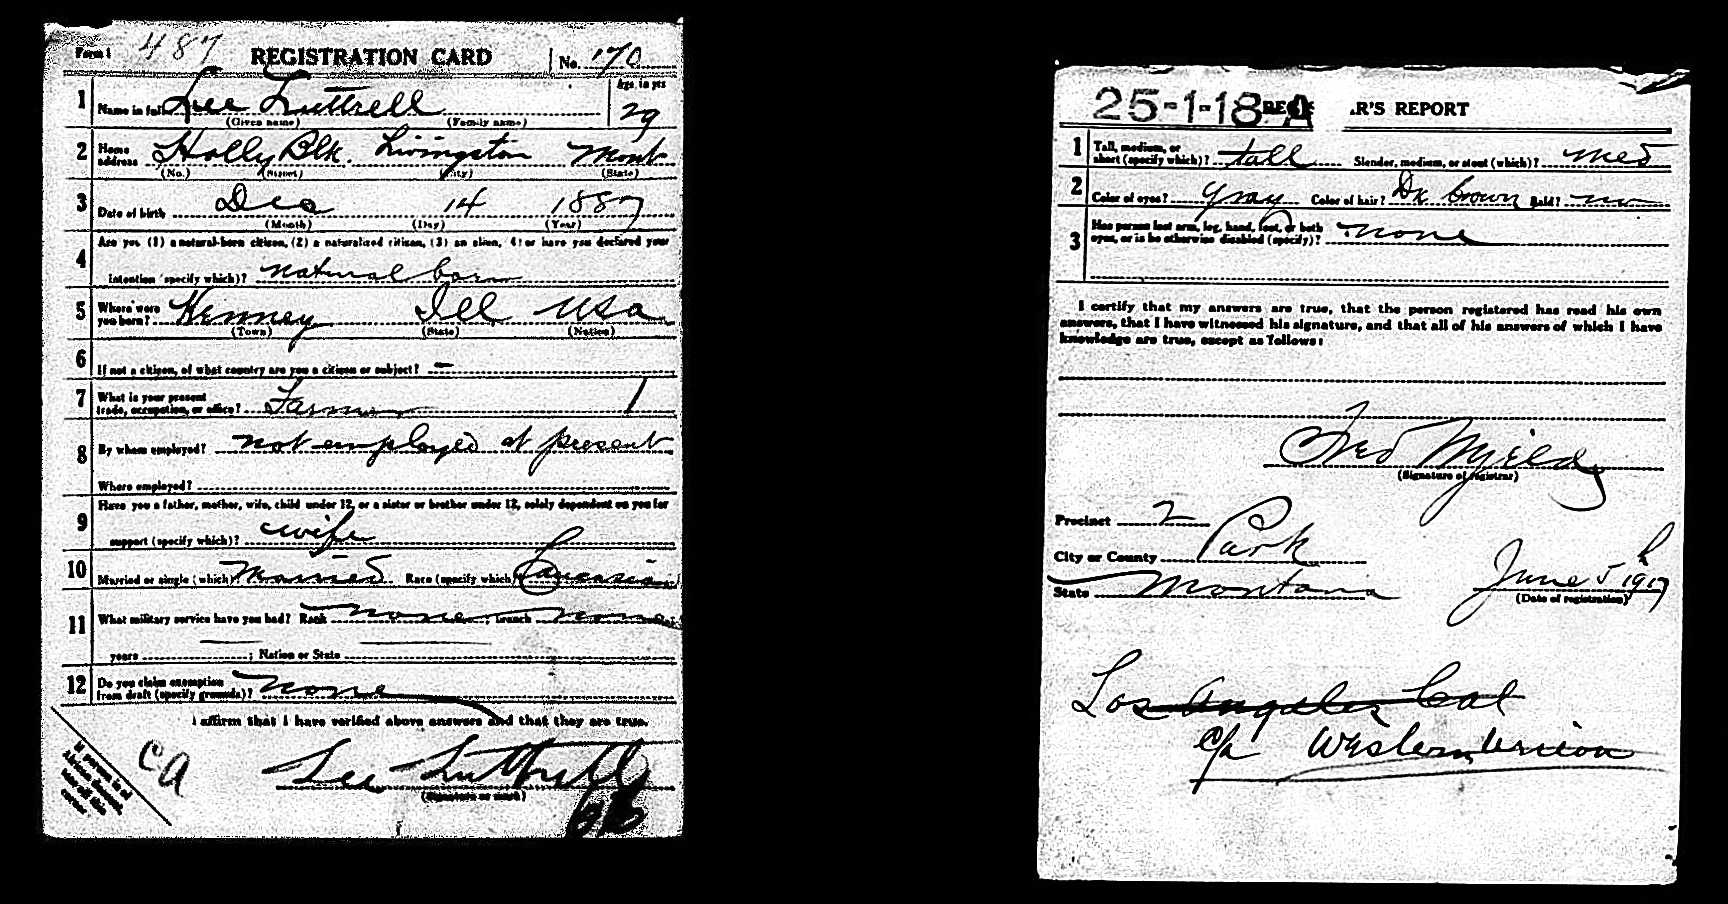 Form 1 487 REGISTRATION CARD No. 170
Age, in yrs
1 Name in full Lee Luttrell 29
(Given name) (Family name)
2 Home address Holly Blk. Livingston Mont
(No.) (Street) (City) (State)
3 Date of birth Dec 14 1887
(Month) (Day) (Year)
4 Are you (1) a natural-born citizen, (2) a naturalized citizen, (3) an alien, (4) or have you declared your
intention (specify which)? natural born
5 Where were you born? Kenney Ill USA
(Town) (State) (Nation)
6 If not a citizen, of what country are you a citizen or subject? -
7 What is your present trade, occupation, or office? Farmer 1
8 By whom employed? not employed at present
Where employed?
9 Have you a father, mother, wife, child under 12, or a sister or brother under 12, solely dependent on you for
support (specify which)? wife
10 Married or single (which)? Married Race (specify which)? Caucasian
11 What military service have you had? Rank none ; branch none
years ; Nation or State
12 Do you claim exemption from draft (specify grounds)? none
I affirm that I have verified above answers and that they are true.
Lee Luttrell
(Signature or mark)
If person is of
African descent,
tear off this
corner.
CA
25-1-18-A REG AR'S REPORT
1 Tall, medium, or short (specify which)? tall Slender, medium, or stout (which)? med
2 Color of eyes? gray Color of hair? Dk brown Bald? no
3 Has person lost arm, leg, hand, foot, or both
eyes, or is he otherwise disabled (specify)? none
I certify that my answers are true, that the person registered has read his own
answers, that I have witnessed his signature, and that all of his answers of which I have
knowledge are true, except as follows:
(Signature of registrar)
Precinct 2
City or County Park
State Montana June 5th 1917
(Date of registration)
Los Angeles Cal
c/o Western Union